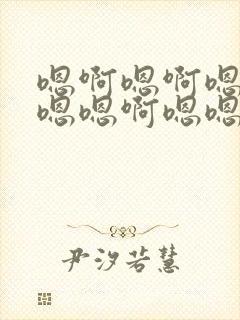 嗯啊嗯啊嗯
嗯嗯啊嗯嗯
尹汐若慧